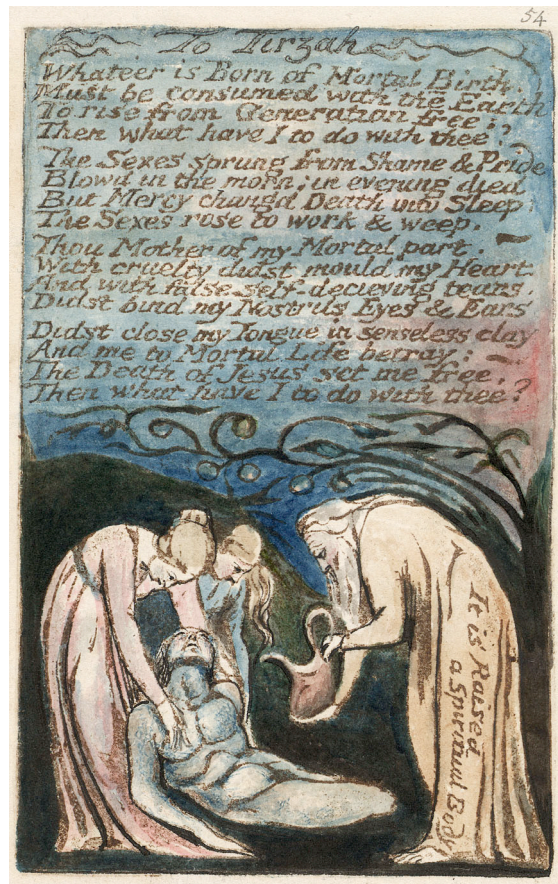 54
To Tirzah
Whate'er is Born of Mortal Birth,
Must be consumed with the Earth
To rise from Generation free;
Then what have I to do with thee?
The Sexes sprung from Shame & Pride
Blow'd in the morn; in evening died
But Mercy chang'd Death into Sleep;
The Sexes rose to work & weep.
Thou Mother of my Mortal part
With cruelty didst mould my Heart
And with false self-decieving tears,
Didst bind my Nostrils Eyes & Ears
Didst close my Tongue in senseless clay
And me to Mortal Life betray:
The Death of Jesus set me free,
Then what have I to do with thee?
It is Raised
a Spiritual Body